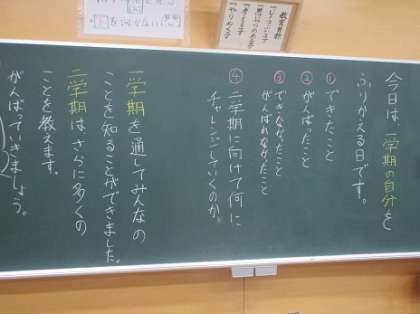 教育目標
今日は、一学期の自分を
ふりかえる日です。
①できたこと
②がんばったこと
③できなかったこと
がんばれなかったこと
④二学期に向けて何に
チャレンジしていくのか。
一学期を通してみんなの
ことを知ることができました。
二学期は、さらに多くの
ことを教えます。
がんばっていきましょう。